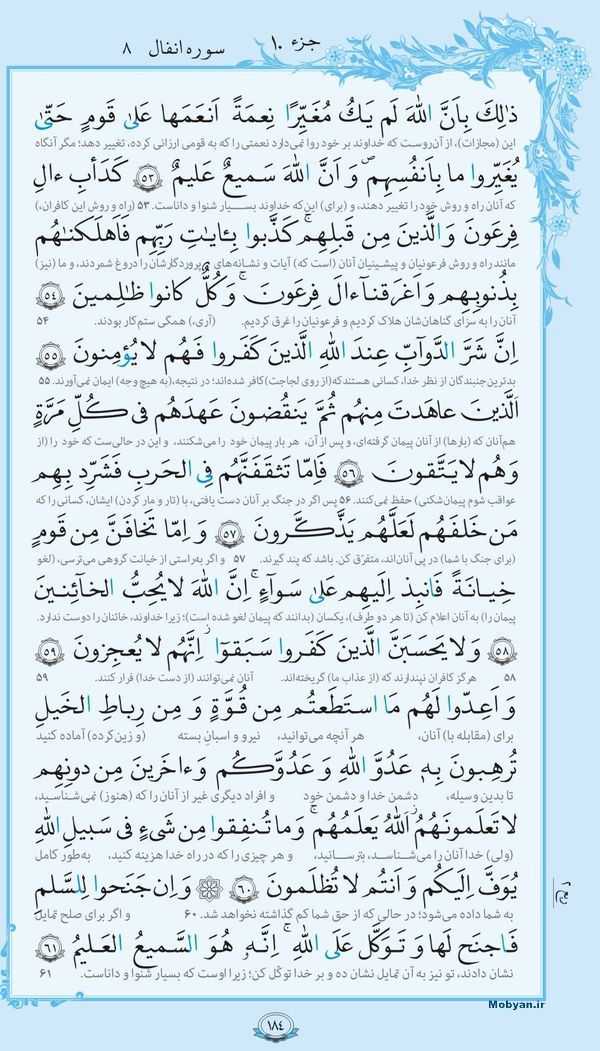 جزء ۱۰
سوره انفال ۸
ذٰلِكَ بِاَنَّ اللّٰهَ لَم يَكُ مُغَيِّرًا نِعمَةً اَنعَمَها عَلىٰ قَومٍ حَتّىٰ
این (مجازات)، از آن‌روست که خداوند بر خود روا نمی‌دارد نعمتی را که به قومی ارزانی کرده، تغییر دهد؛ مگر آنگاه
يُغَيِّروا ما بِاَنفُسِهِم ۙ وَ اَنَّ اللّٰهَ سَميعٌ عَليمٌ ۵۳ كَدَأبِ ءالِ
که آنان راه و روش خود را تغییر دهند، و (برای) این‌که خداوند بسیار شنوا و داناست. ۵۳ (راه و روش این کافران،)
فِرعَونَ وَ الَّذينَ مِن قَبلِهِم ۚ كَذَّبوا بِـٔايٰتِ رَبِّهِم فَاَهلَكنٰهُم
مانند راه و روش فرعونیان و پیشینیان آنان (است که) آیات و نشانه‌های پروردگارشان را دروغ شمردند، و ما (نیز)
بِذُنوبِهِم وَ اَغرَقنا ءالَ فِرعَونَ ۚ وَ كُلٌّ كانوا ظٰلِمينَ ۵۴
آنان را به سزای گناهان‌شان هلاک کردیم و فرعونیان را غرق کردیم. (آری،) همگی ستم‌کار بودند. ۵۴
اِنَّ شَرَّ الدَّوآبِّ عِندَ اللّٰهِ الَّذينَ كَفَروا فَهُم لا يُؤمِنونَ ۵۵
بدترین جنبندگان از نظر خدا، کسانی هستند که (از روی لجاجت) کافر شده‌اند؛ در نتیجه، (به هیچ وجه) ایمان نمی‌آورند. ۵۵
اَلَّذينَ عاهَدتَ مِنهُم ثُمَّ يَنقُضونَ عَهدَهُم في كُلِّ مَرَّةٍ
هم‌آنان که (بارها) از آنان پیمان گرفته‌ای، و پس از آن، هر بار پیمان خود را می‌شکنند، و این در حالی‌ست که خود را (از
وَ هُم لا يَتَّقونَ ۵۶ فَاِمّا تَثقَفَنَّهُم فِي الحَربِ فَشَرِّد بِهِم
عواقب شوم پیمان‌شکنی) حفظ نمی‌کنند. ۵۶ پس اگر در جنگ بر آنان دست یافتی، با (تار و مار کردن) ایشان، کسانی را که
مَن خَلفَهُم لَعَلَّهُم يَذَّكَّرونَ ۵۷ وَ اِمّا تَخافَنَّ مِن قَومٍ
(برای جنگ با شما) در پی آنان‌اند، متفرّق کن. باشد که پند گیرند. ۵۷ و اگر به‌راستی از خیانت گروهی می‌ترسی، (لغو
خِيانَةً فَانبِذ اِلَيهِم عَلىٰ سَوآءٍ ۚ اِنَّ اللّٰهَ لا يُحِبُّ الخآئِنينَ
پیمان را) به آنان اعلام کن (تا هر دو طرف)، یکسان (بدانند که پیمان لغو شده است)؛ زیرا خداوند، خائنان را دوست ندارد.
۵۸ وَ لا يَحسَبَنَّ الَّذينَ كَفَروا سَبَقوٓا ۚ اِنَّهُم لا يُعجِزونَ ۵۹
۵۸ هرگز کافران نپندارند که (از عذاب ما) گریخته‌اند. آنان نمی‌توانند (از دست خدا) فرار کنند. ۵۹
وَ اَعِدّوا لَهُم مَا استَطَعتُم مِن قُوَّةٍ وَ مِن رِباطِ الخَيلِ
برای (مقابله با) آنان، هر آنچه می‌توانید، نیرو و اسبان بسته (و زین‌کرده) آماده کنید
تُرهِبونَ بِهٖ عَدُوَّ اللّٰهِ وَ عَدُوَّكُم وَ ءاخَرينَ مِن دونِهِم
تا بدین وسیله، دشمن خدا و دشمن خود و افراد دیگری غیر از آنان را که (هنوز) نمی‌شناسید،
لا تَعلَمونَهُمُ اللّٰهُ يَعلَمُهُم ۚ وَ ما تُنفِقوا مِن شَيءٍ في سَبيلِ اللّٰهِ
(ولی) خدا آنان را می‌شناسد، بترسانید، و هر چیزی را که در راه خدا هزینه کنید، به‌طور کامل
يُوَفَّ اِلَيكُم وَ اَنتُم لا تُظلَمونَ ۶۰ وَ اِن جَنَحوا لِلسَّلمِ
به شما داده می‌شود؛ در حالی که از حق شما کم گذاشته نخواهد شد. ۶۰ و اگر برای صلح تمایل
فَاجنَح لَها وَ تَوَكَّل عَلَى اللّٰهِ ۚ اِنَّهٗ هُوَ السَّميعُ العَليمُ ۶۱
نشان دادند، تو نیز به آن تمایل نشان ده و بر خدا توکّل کن؛ زیرا اوست که بسیار شنوا و داناست. ۶۱
Mobyan.ir
۱۸۴